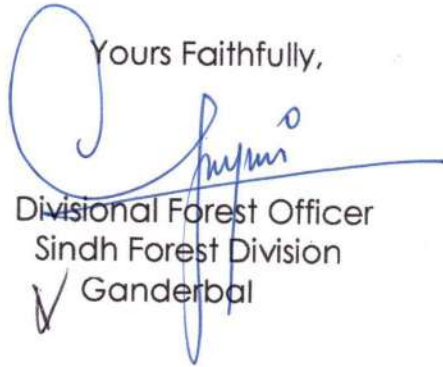 Yours Faithfully,
Divisional Forest Officer
Sindh Forest Division
Ganderbal